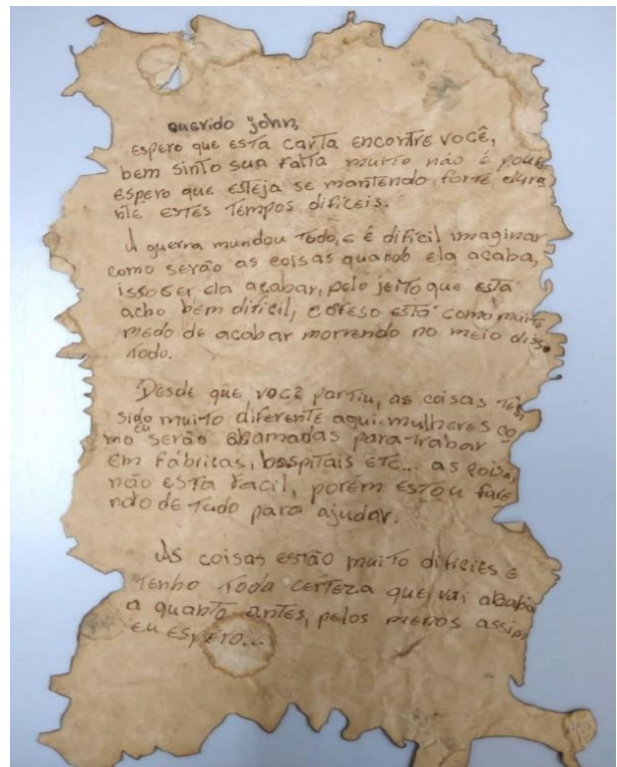 querido john,
espero que esta carta encontre você,
bem sinto sua falta muito não é pouc
espero que esteja se mantendo forte dura
nte estes tempos dificeis.
A guerra mundou todo, e é dificil imaginar
como serão as coisas quando ela acaba,
isso ser ela acabar, pelo jeito que está
acho bem dificil, cofeso está como muito
medo de acabar morrendo no meio disso
todo.
Desde que você partiu, as coisas
sido muito diferente aqui. mulheres co
mo eu serão chamadas para trabar
em fábricas, hospitais etc... as coisa,
não esta facil, porém estou faze
ndo de tudo para ajudar.
As coisas estão muito dificies e
tenho toda certeza que vai
a quanto antes, pelos menos assim
eu espero...